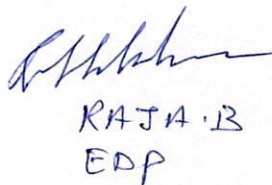 RAJA.B
EDP